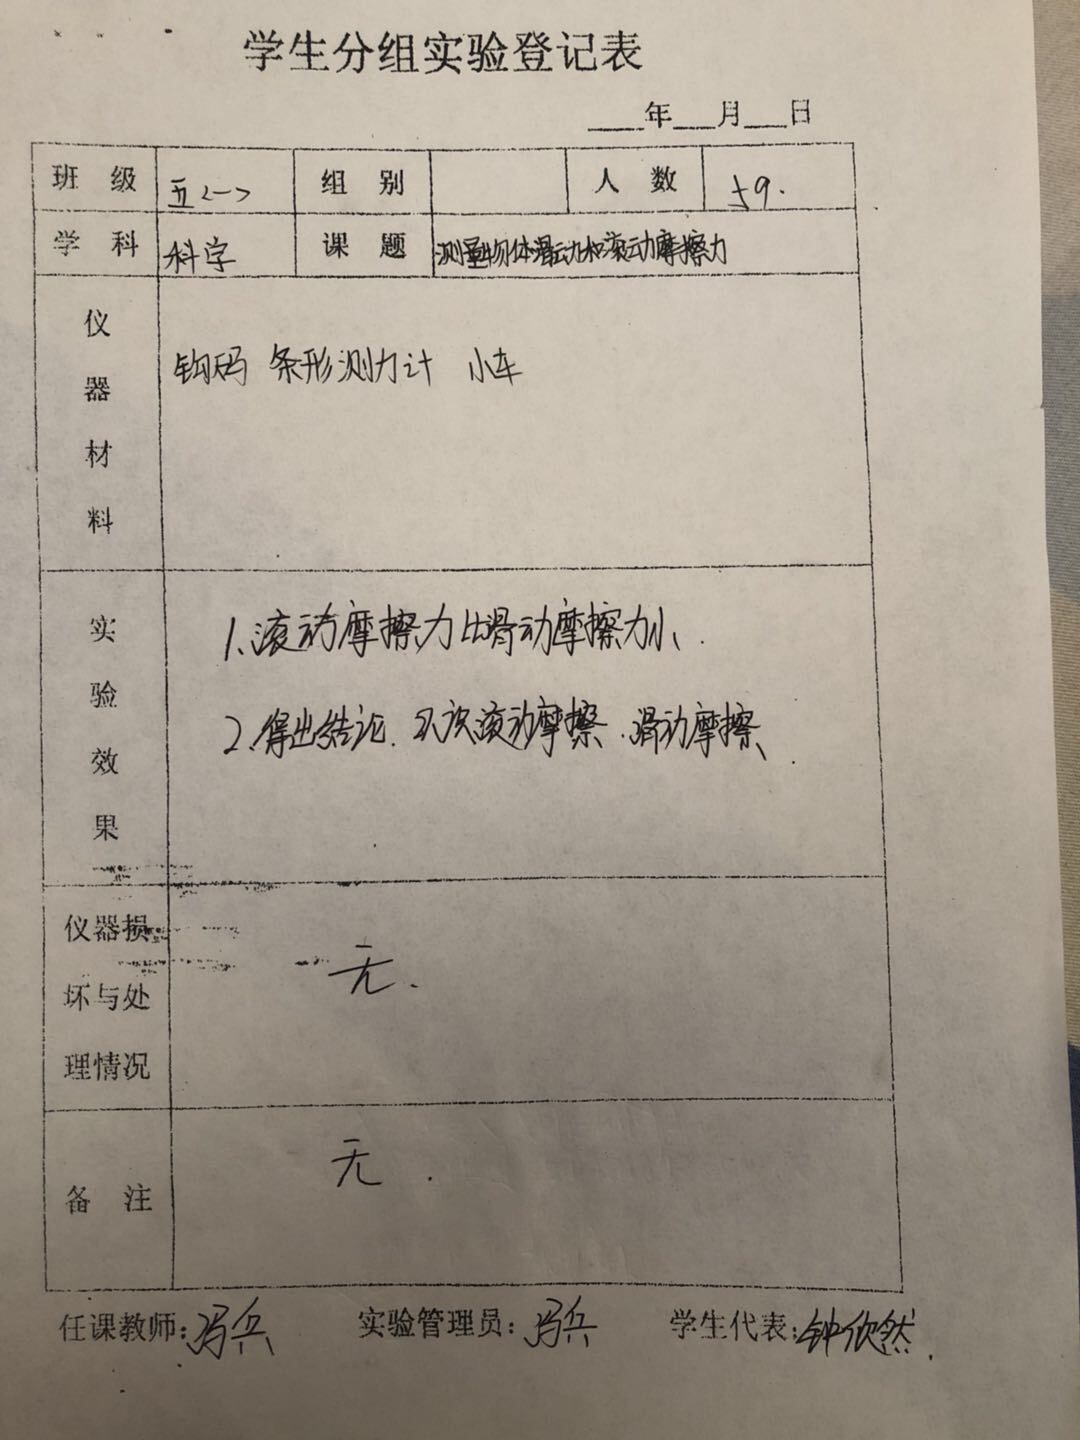 学生分组实验登记表
___年___月___日
班 级 五<一> 组 别 人 数 59.
学 科 科学 课 题 测量物体滑动和滚动摩擦力
仪器材料 钩码 条形测力计 小车
实验效果 1、滚动摩擦力比滑动摩擦力小、
2、得出结论、 次滚动摩擦、滑动摩擦、
仪器损坏与处理情况 无.
备 注 无.
任课教师:冯兵 实验管理员:冯兵 学生代表:钟欣然.